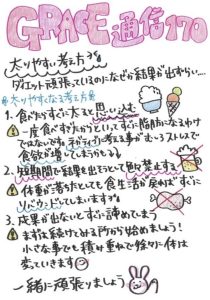 GRACE通信170
太りやすい考え方
ダイエット頑張っているのになぜか結果が出ずらい…
太りやすくなる考え方
1. 食べたらすぐに太ると思い込む
一度食べすぎたからといってすぐに脂肪になるわけ
ではないです。ネガティブに考える事がむしろストレスで
食欲が増してしまうかも
2. 短期間で結果を出そうとして無理に禁止する
体重が落ちたとしても食生活が戻ればすぐに
リバウンドしてしまいます
3. 成果が出ないとすぐに諦めてしまう
まずは続けられる所から始めましょう!
小さな事でも積み重ねで徐々に体は
変っていきます
一緒に頑張りましょう